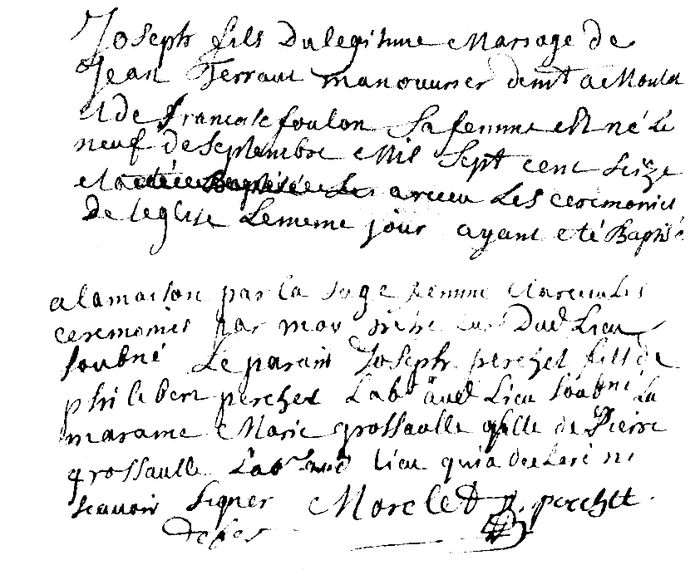 Joseph fils Dulegitime Mariage de
Jean Terrant manouvrier demt a Moulot
et de francoise foulon Sa femme est né Le
neuf de Septembre Mil Sept cent Seize
et a receu Les ceremonies
de leglise Lememe jour ayant eté Baptisé
alamaison par la sage femme
ceremonies par moy Dud Lieu
soubné Le parain Joseph perchet fils de
philibert perchet Labr aud Lieu soubné La
maraine Marie grossaulle fille de Pierre
grossaulle Labr aud lieu qui a declaré ne
scavoir signer Morelet perchet